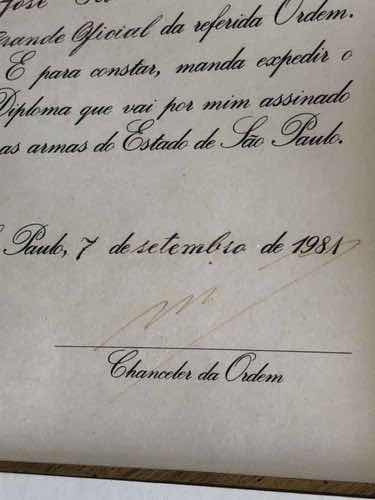 José
Grande Oficial da referida Ordem.
E para constar, manda expedir o
Diploma que vai por mim assinado
as armas do Estado de São Paulo.
Paulo, 7 de setembro de 1981
Chanceler da Ordem